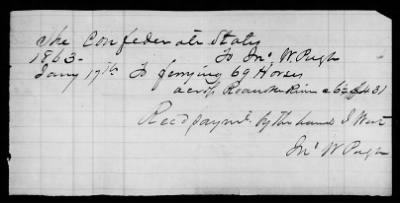 The Confederate States
1863 - To Jno W. Pugh
Jany 17th To ferrying 69 Horses
across Roanoke River @ 6¼ $4 31
Recd paymt by the hand J West
Jno W Pugh